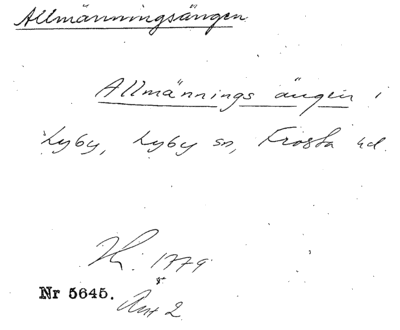 Allmänningsängen
Allmännings ängen i
Lyby, Lyby sn, Frosta hd.
1779
Nr 5645.
Akt 2